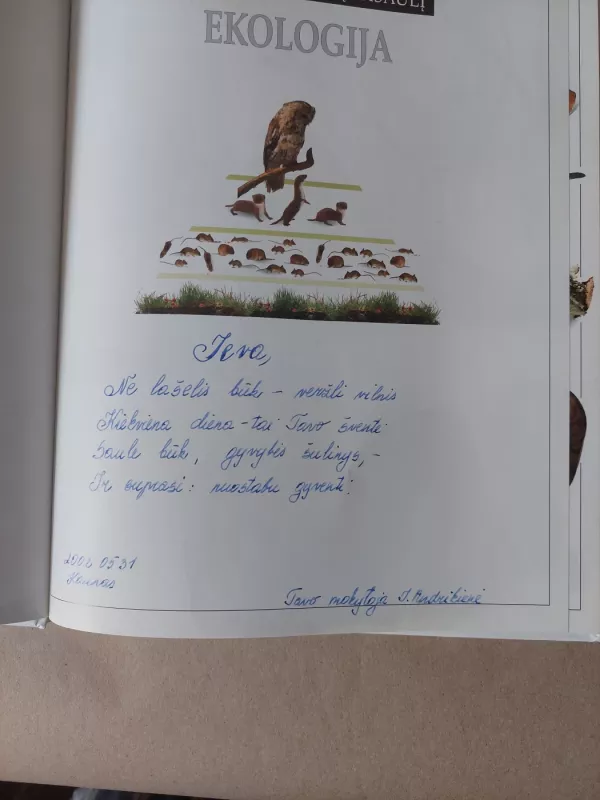 EKOLOGIJA
Ieva,
Ne lašelis būk - veržli vilnis
Kiekviena diena - tai Tavo šventė.
Saule būk, gyvybės šulinys, -
Ir suprasi: nuostabu gyventi!
2002 05 31
Kaunas
Tavo mokytoja